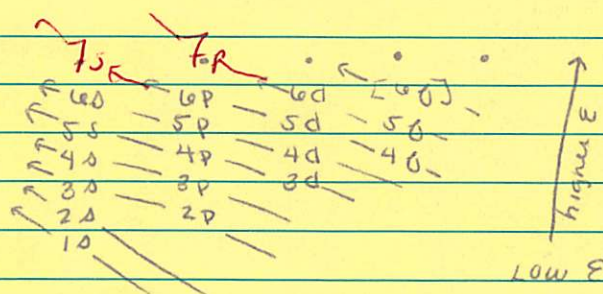 7s 7p
6s 6p 6d [6f]
5s 5p 5d 5f
4s 4p 4d 4f
3s 3p 3d
2s 2p
1s
higher E
Low E